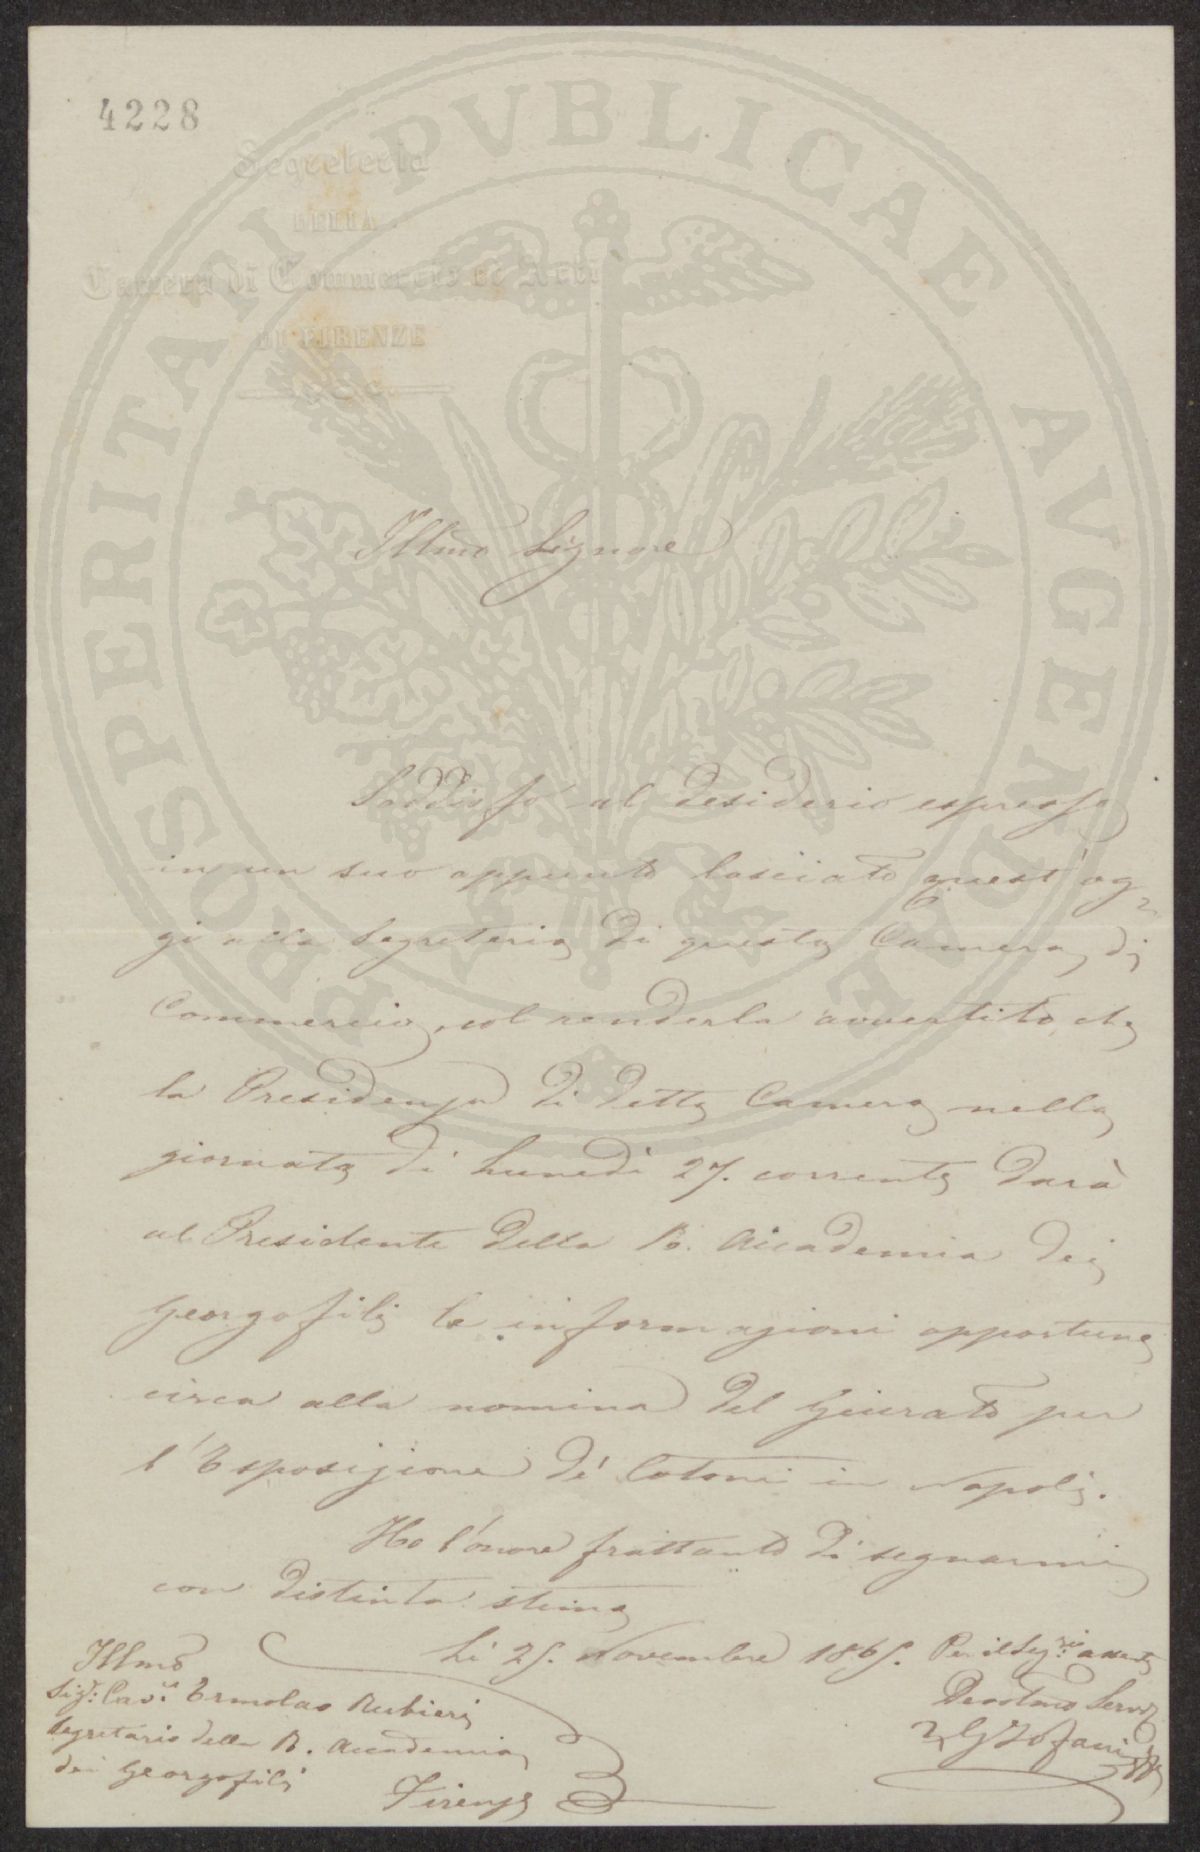 4228
Segreteria
DELLA
Camera di Commercio ed Arti
DI FIRENZE
PROSPERITATI PVBLICAE AVGENDAE
Illmo Signore
Soddisfo al desiderio espresso
in un suo appunto lasciato quest'og-
gi alla Segreteria di questa Camera di
Commercio, col renderla avvertito che
la Presidenza di detta Camera nella
giornata di Lunedì 27. corrente darà
al Presidente della R. Accademia dei
Georgofili le informazioni opportune
circa alla nomina del Giurato per
l'Esposizione de' Cotoni in Napoli.
Ho l'onore frattanto di segnarmi
con distinta stima
Li 25. Novembre 1865. Per il Seg.rio assente
Illmo
Sig.r Cav.e Ermolao Rubieri
Segretario della R. Accademia
dei Georgofili
Firenze
Devotmo Servo